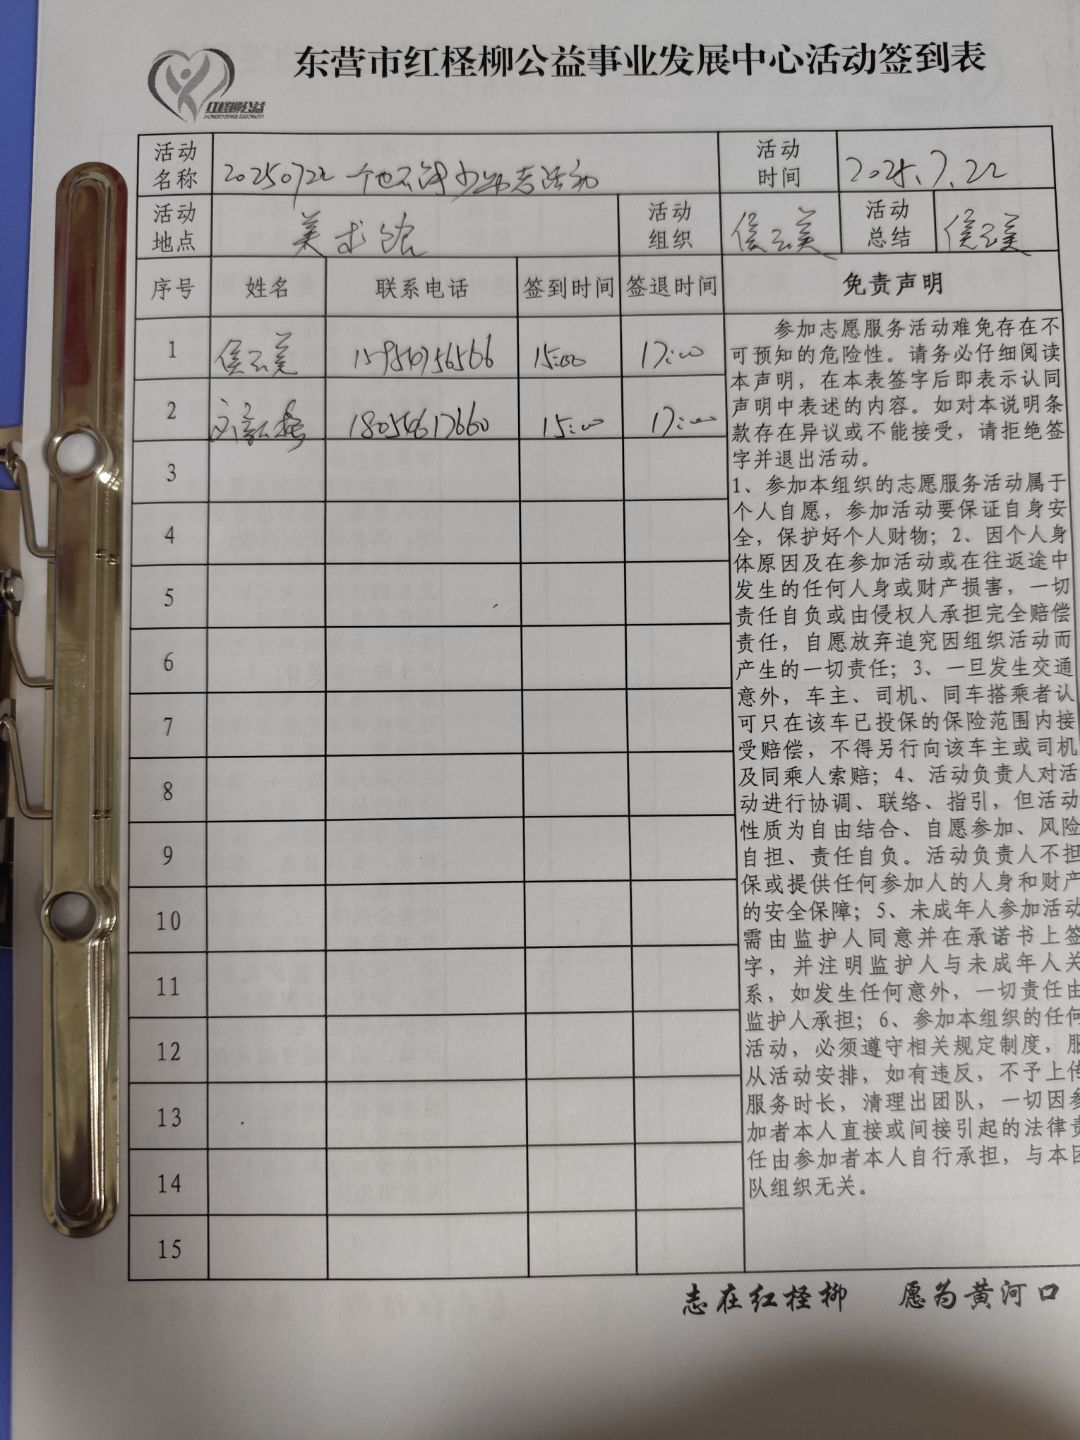 东营市红柽柳公益事业发展中心活动签到表
红柽柳公益
活动名称 20250722 一个也不能少 活动 活动时间 2025.7.22
活动地点 美术馆 活动组织 侯云美 活动总结 侯云美
序号 姓名 联系电话 签到时间 签退时间 免责声明
1 侯云美 15954756566 15:00 17:00
2 18054617660 15:00 17:00
3
4
5
6
7
8
9
10
11
12
13
14
15
参加志愿服务活动难免存在不
可预知的危险性。请务必仔细阅读
本声明，在本表签字后即表示认同
声明中表述的内容。如对本说明条
款存在异议或不能接受，请拒绝签
字并退出活动。
1、参加本组织的志愿服务活动属于
个人自愿，参加活动要保证自身安
全，保护好个人财物；2、因个人身
体原因及在参加活动或在往返途中
发生的任何人身或财产损害，一切
责任自负或由侵权人承担完全赔偿
责任，自愿放弃追究因组织活动而
产生的一切责任；3、一旦发生交通
意外，车主、司机、同车搭乘者认
可只在该车已投保的保险范围内接
受赔偿，不得另行向该车主或司机
及同乘人索赔；4、活动负责人对活
动进行协调、联络、指引，但活动
性质为自由结合、自愿参加、风险
自担、责任自负。活动负责人不担
保或提供任何参加人的人身和财产
的安全保障；5、未成年人参加活动
需由监护人同意并在承诺书上签
字，并注明监护人与未成年人关
系，如发生任何意外，一切责任由
监护人承担；6、参加本组织的任何
活动，必须遵守相关规定制度，服
从活动安排，如有违反，不予上传
服务时长，清理出团队，一切因参
加者本人直接或间接引起的法律责
任由参加者本人自行承担，与本团
队组织无关。
志在红柽柳 愿为黄河口